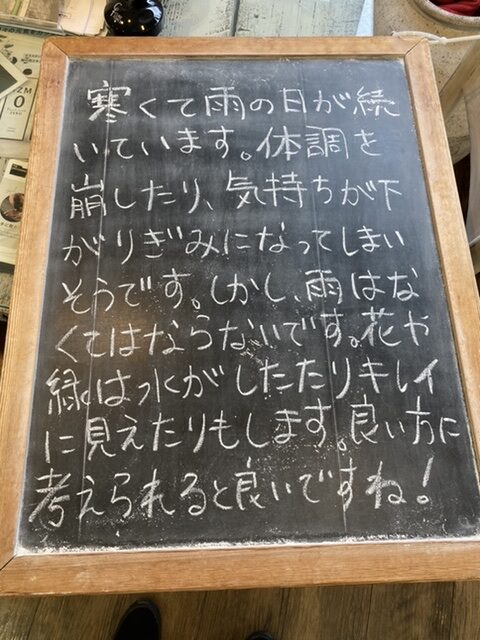 寒くて雨の日が続
いています。体調を
崩したり、気持ちが下
がりぎみになってしまい
そうです。しかし、雨はな
くてはならないです。花や
緑は水がしたたりキレイ
に見えたりもします。良い方に
考えられると良いですね!